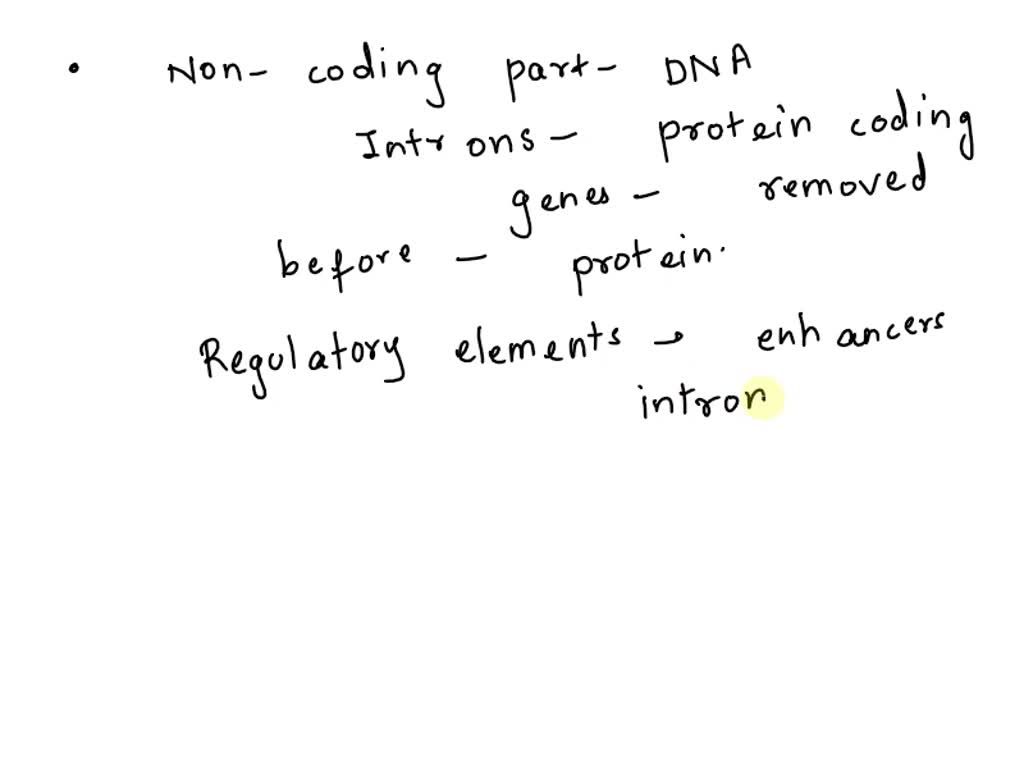 • Non- coding part- DNA
Introns - protein coding
genes - removed
before - protein.
Regulatory elements → enhancers
intron